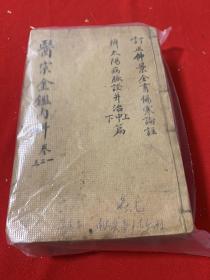 訂正仲景全書傷寒論註
辨太陽病脈證并治中上
下篇
醫宗金鑑內科 卷一二
三